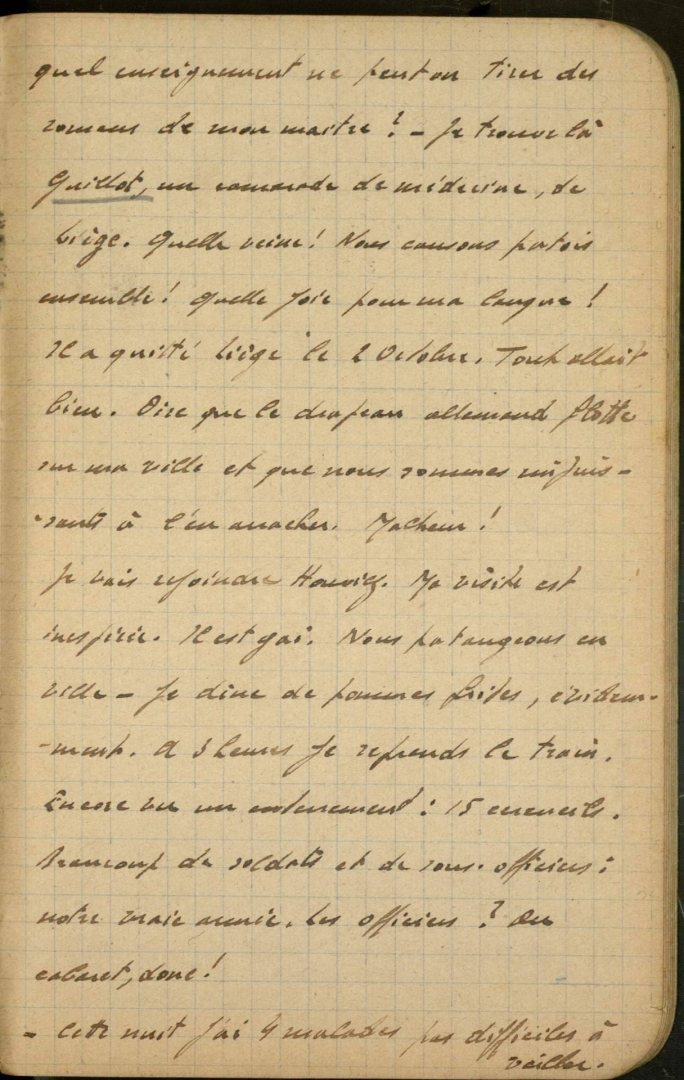 quel enseignement ne peut on tirer des
romans de mon maitre ? - Je trouve là
Guillot, un camarade de médecine, de
Liège. Quelle veine ! Nous causons patois
ensemble ! Quelle joie pour ma langue !
Il a quitté Liège le 2 Octobre. Tout allait
bien. Dire que le drapeau allemand flotte
sur ma ville et que nous sommes impuis-
-sants à l'en arracher. Malheur !
Je vais rejoindre Ma visite est
inespérée. Il est gai. Nous pataugeons en
ville - Je dine de pommes frites, évidem-
-ment. A 3 heures je reprends le train.
Encore vu un enterrement : 15 cercueils.
Beaucoup de soldats et de sous-officiers :
notre vraie armée. Les officiers ? Au
cabaret, donc !
- Cette nuit j'ai 4 malades pas difficiles à
veiller.